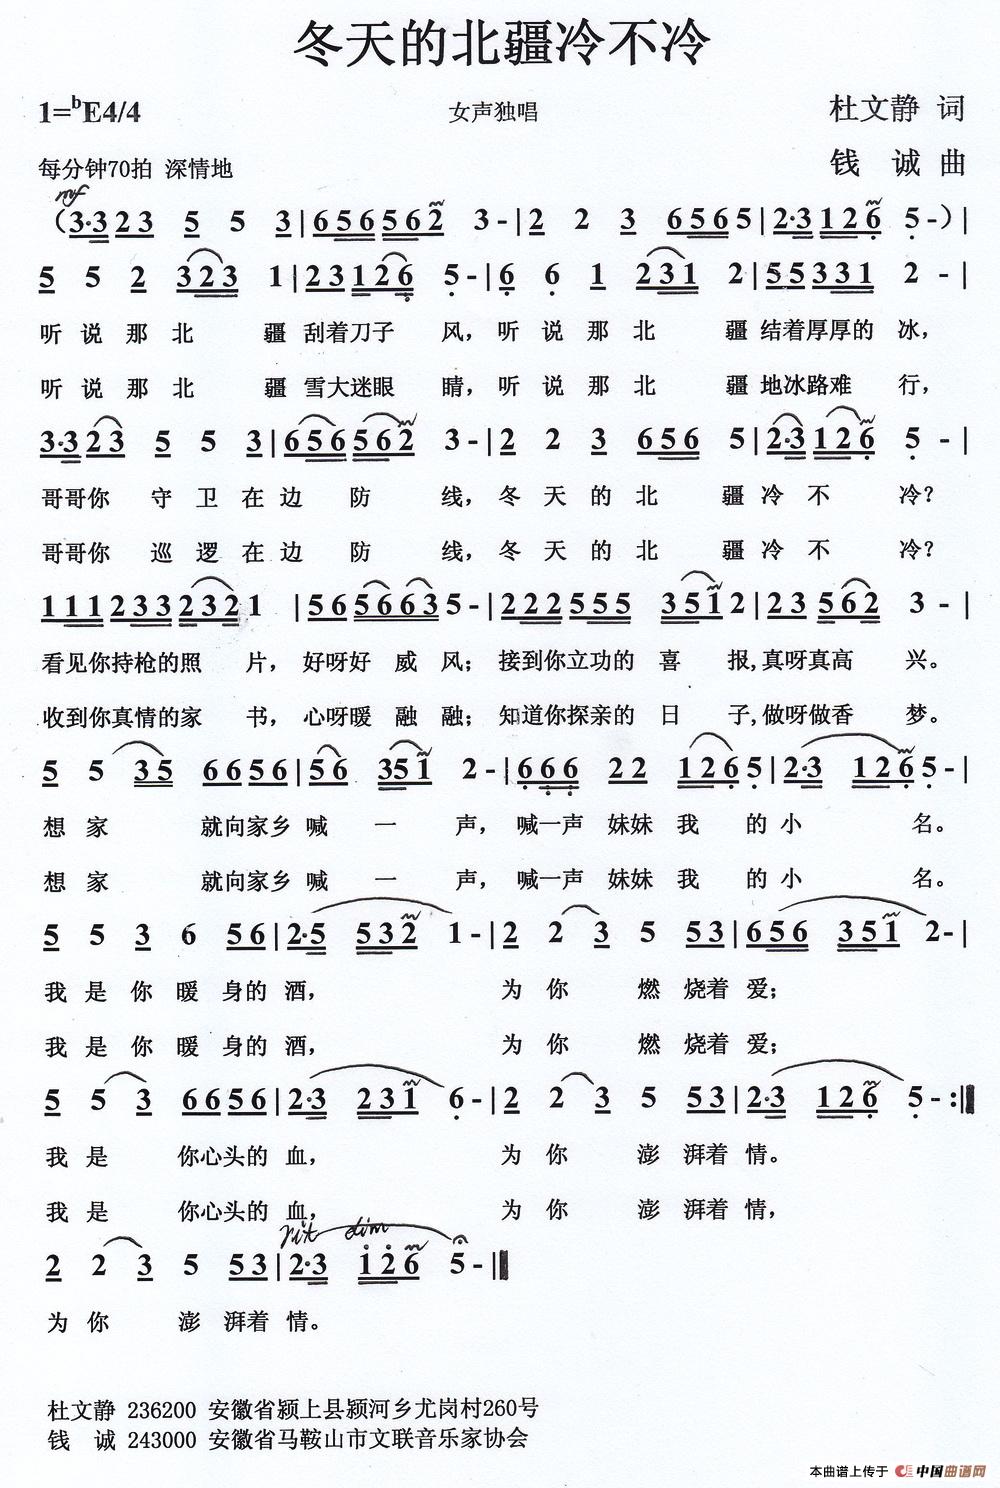 冬天的北疆冷不冷
1=bE4/4
女声独唱
杜文静 词
每分钟70拍 深情地
钱 诚 曲
mf
(3·3 2 3 5 5 3|6 5 6 5 6 2 3 -|2 2 3 6 5 6 5|2·3 1 2 6 5 -)|
5 5 2 3 2 3 1|2 3 1 2 6 5 -|6 6 1 2 3 1 2|5 5 3 3 1 2 -|
听 说 那 北 疆 刮着刀子 风,听 说 那 北 疆 结着厚厚的 冰,
听 说 那 北 疆 雪大迷眼 睛,听 说 那 北 疆 地冰路难 行,
3·3 2 3 5 5 3|6 5 6 5 6 2 3 -|2 2 3 6 5 6 5|2·3 1 2 6 5 -|
哥哥你 守 卫 在 边 防 线,冬 天 的 北 疆 冷 不 冷?
哥哥你 巡 逻 在 边 防 线,冬 天 的 北 疆 冷 不 冷?
1 1 1 2 3 3 2 3 2 1 |5 6 5 6 6 3 5 -|2 2 2 5 5 5 3 5 1 2|2 3 5 6 2 3 -|
看见你持枪的照 片, 好呀好 威 风; 接到你立功的 喜 报,真呀真高 兴。
收到你真情的家 书, 心呀暖 融 融; 知道你探亲的 日 子,做呀做香 梦。
5 5 3 5 6 6 5 6|5 6 3 5 1 2 -|6 6 6 2 2 1 2 6 5|2·3 1 2 6 5 -|
想 家 就向家乡 喊 一 声, 喊一声 妹妹 我 的 小 名。
想 家 就向家乡 喊 一 声, 喊一声 妹妹 我 的 小 名。
5 5 3 6 5 6|2·5 5 3 2 1 -|2 2 3 5 5 3|6 5 6 3 5 1 2 -|
我 是 你 暖 身的 酒, 为 你 燃 烧着 爱;
我 是 你 暖 身的 酒, 为 你 燃 烧着 爱;
5 5 3 6 6 5 6|2·3 2 3 1 6 -|2 2 3 5 5 3|2·3 1 2 6 5 -:‖
我 是 你心头的 血, 为 你 澎 湃着 情。
我 是 你心头的 血, 为 你 澎 湃着 情,
rit dim
2 2 3 5 5 3|2·3 1 2 6 5 -‖
为 你 澎 湃着 情。
杜文静 236200 安徽省颍上县颍河乡尤岗村260号
钱 诚 243000 安徽省马鞍山市文联音乐家协会
本曲谱上传于 中国曲谱网